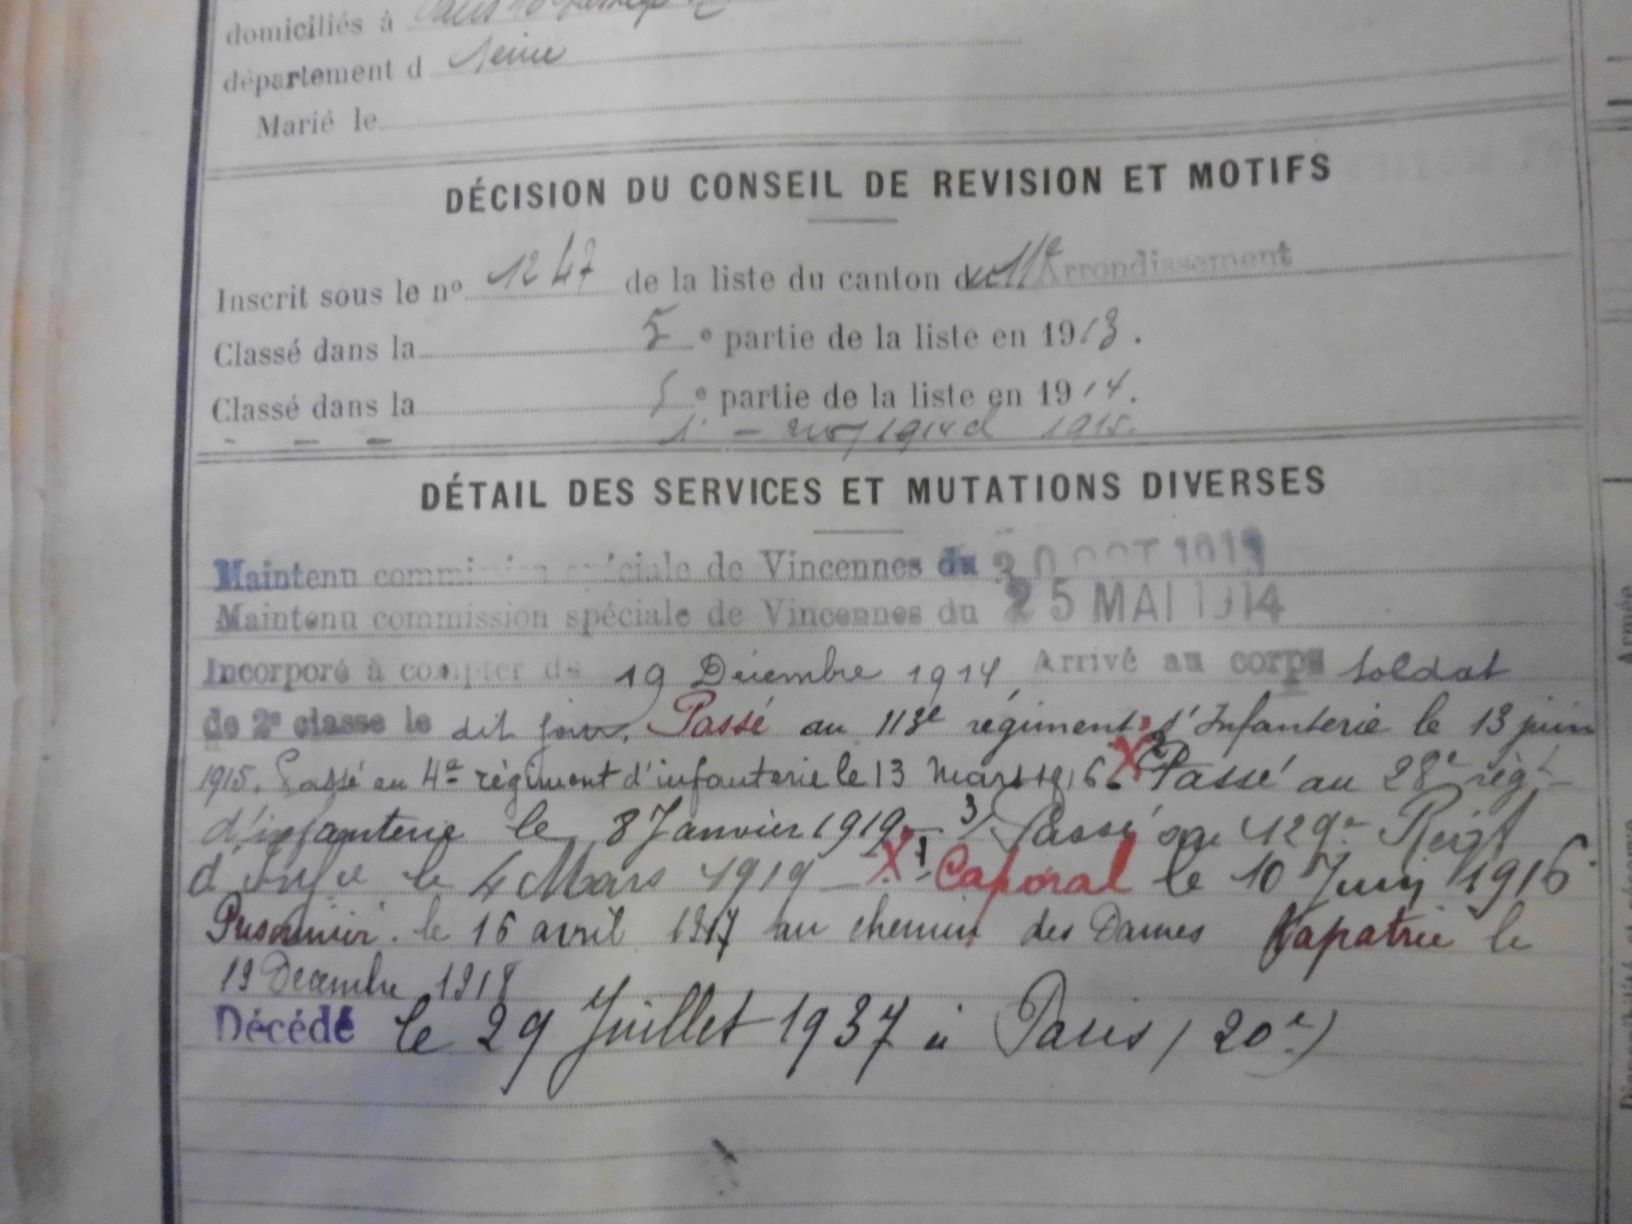 domiciliés à Paris
département d Seine
Marié le
DÉCISION DU CONSEIL DE REVISION ET MOTIFS
Inscrit sous le nº 1247 de la liste du canton du 11e Arrondissement
Classé dans la 5 e partie de la liste en 1913.
Classé dans la 5 e partie de la liste en 1914.
- - - 1. - 1914 d 1915.
DÉTAIL DES SERVICES ET MUTATIONS DIVERSES
Maintenu commission spéciale de Vincennes du 30 OCT 1913
Maintenu commission spéciale de Vincennes du 25 MAI 1914
Incorporé à compter du 19 Décembre 1914, Arrivé au corps soldat
de 2e classe le dit jour. Passé au 113e régiment d'Infanterie le 13 juin
1915. Passé au 4e régiment d'infanterie le 13 Mars 1916. X 2 Passé au 28e régt
d'infanterie le 8 Janvier 1919 - 3/ Passé au 129e Régt
d'Infie le 4 Mars 1919 - X 1 Caporal le 10 Juin 1916.
Prisonnier. le 16 avril 1917 au chemin des Dames Rapatrié le
19 Décembre 1918
Décédé le 29 Juillet 1937 à Paris (20e)
Armée